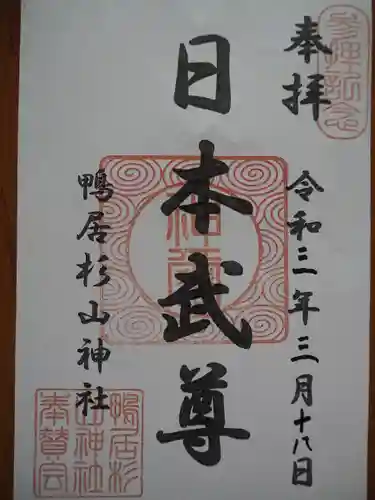 参拝記念
奉拝
令和三年三月十八日
日本武尊
鴨居杉山神社
鴨居杉
山神社
奉賛会